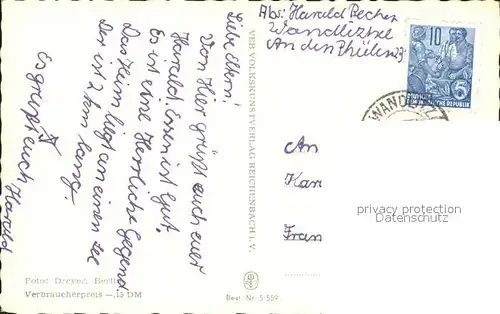 Abs: Harald Becher
Wandlitzsee
An den Pfülen 23
10
5
DEUTSCHE
DEMOKRATISCHE REPUBLIK
WANDLITZ
Liebe Eltern!
Von Hier grüßt euch euer
Harald! Essen ist Gut.
Es ist eine Herrliche Gegend
Das Heim liegt an einen See
Der ist 2 km lang.
Es grüßt euch Harald
VEB VOLKSKUNSTVERLAG REICHENBACH I. V.
An
Kar
Fran
privacy protection
Datenschutz
Foto: Dreyer, Berlin
Verbraucherpreis —,15 DM
Best. Nr. 5/559